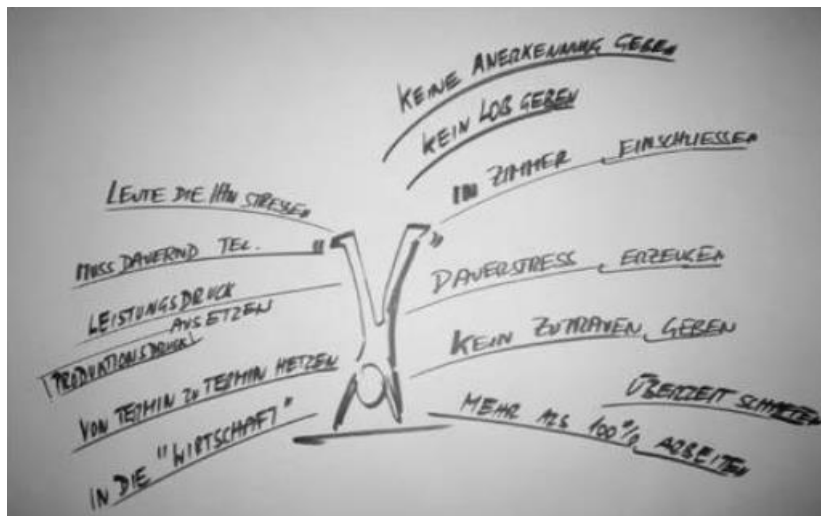 KEINE ANERKENNUNG GEBEN
KEIN LOB GEBEN
IN ZIMMER EINSCHLIESSEN
DAUERSTRESS ERZEUGEN
KEIN ZUTRAUEN GEBEN
ÜBERZEIT
MEHR ALS 100% ARBEITEN
LEUTE DIE IHN STRESSEN
MUSS DAUERND TEL.
LEISTUNGSDRUCK
AUSSETZEN
PRODUKTIONSDRUCK
VON TERMIN ZU TERMIN HETZEN
IN DIE "WIRTSCHAFT"